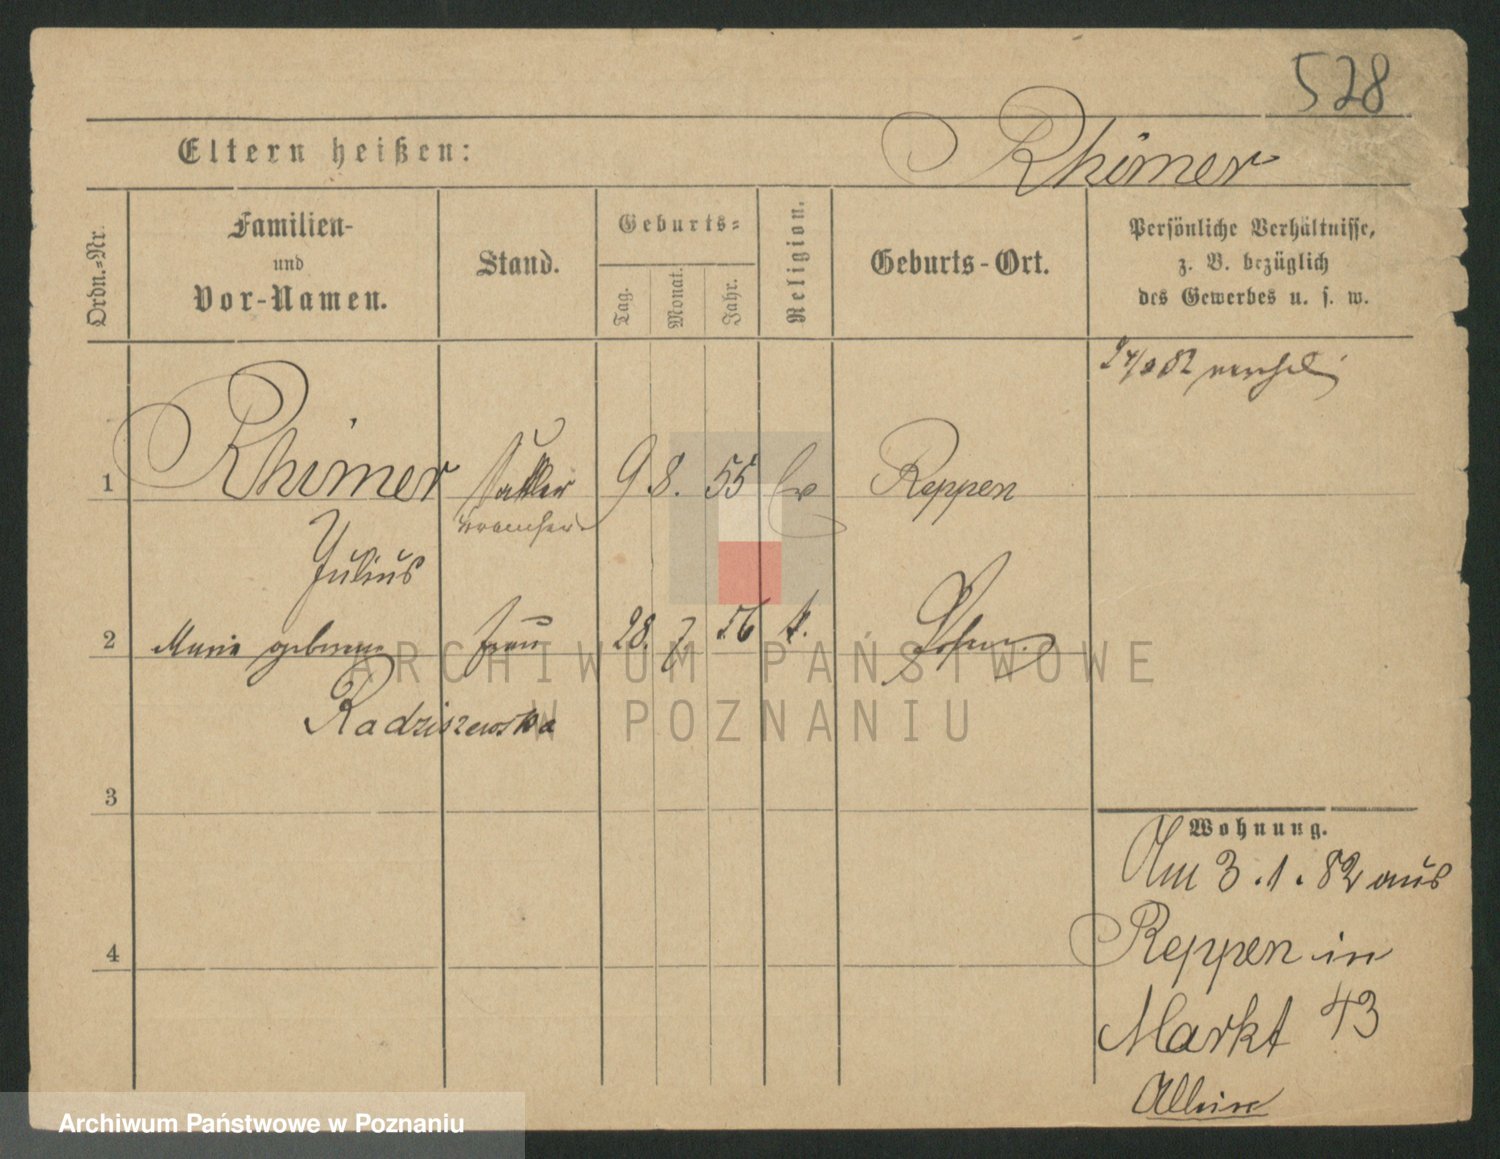 528
Eltern heißen:
Rhimer
Ordn.-Nr.
Familien-
und
Vor-Namen.
Stand.
Geburts-
Tag.
Monat.
Jahr.
Religion.
Geburts-Ort.
Persönliche Verhältnisse,
z. B. bezüglich
des Gewerbes u. s. w.
82
1 Rhimer Sattler 9 8. 55 Reppen
Julius
2 Maria geborene Frau 28. 7. 56 k. Posen
Radziszewska
3
4
Wohnung.
Am 3.1.82 aus
Reppen in
Markt 43
Allein
ARCHIWUM PAŃSTWOWE
W POZNANIU
Archiwum Państwowe w Poznaniu